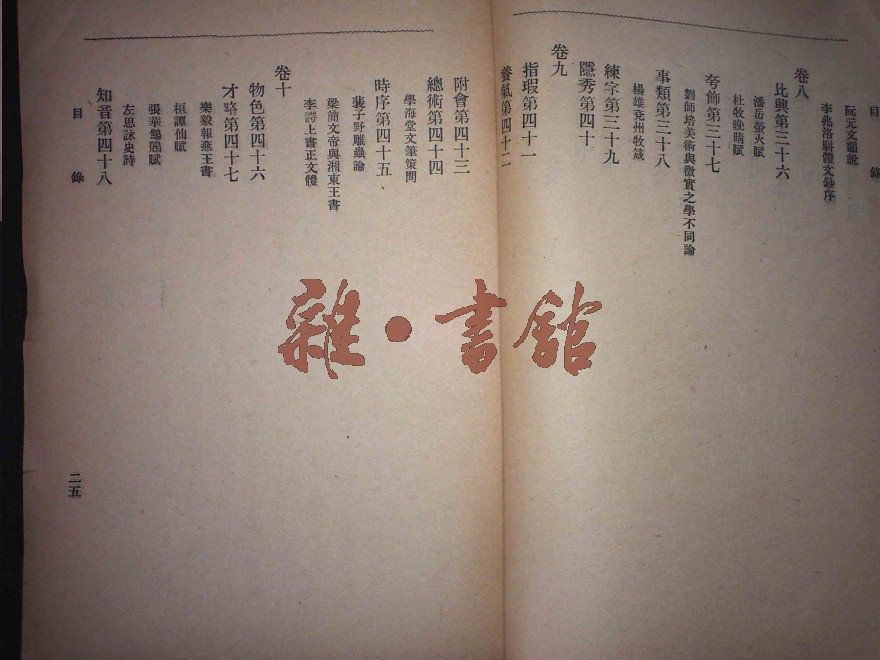 目錄
阮元文韻說
李兆洛駢體文鈔序
卷八
比興第三十六
潘岳螢火賦
杜牧晚晴賦
夸飾第三十七
劉師培美術與徵實之學不同論
事類第三十八
楊雄兗州牧箴
練字第三十九
隱秀第四十
卷九
指瑕第四十一
養氣第四十二
附會第四十三
總術第四十四
學海堂文筆策問
時序第四十五
裴子野雕蟲論
梁簡文帝與湘東王書
李諤上書正文體
卷十
物色第四十六
才略第四十七
樂毅報燕王書
桓譚仙賦
張華鷦鷯賦
左思詠史詩
知音第四十八
目錄
二五
雜·書館